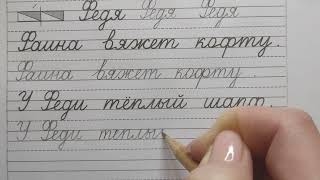 Федя Федя Федя
Фаина вяжет кофту.
Фаина вяжет кофту.
У Феди тёплый шарф.
У Феди теплы